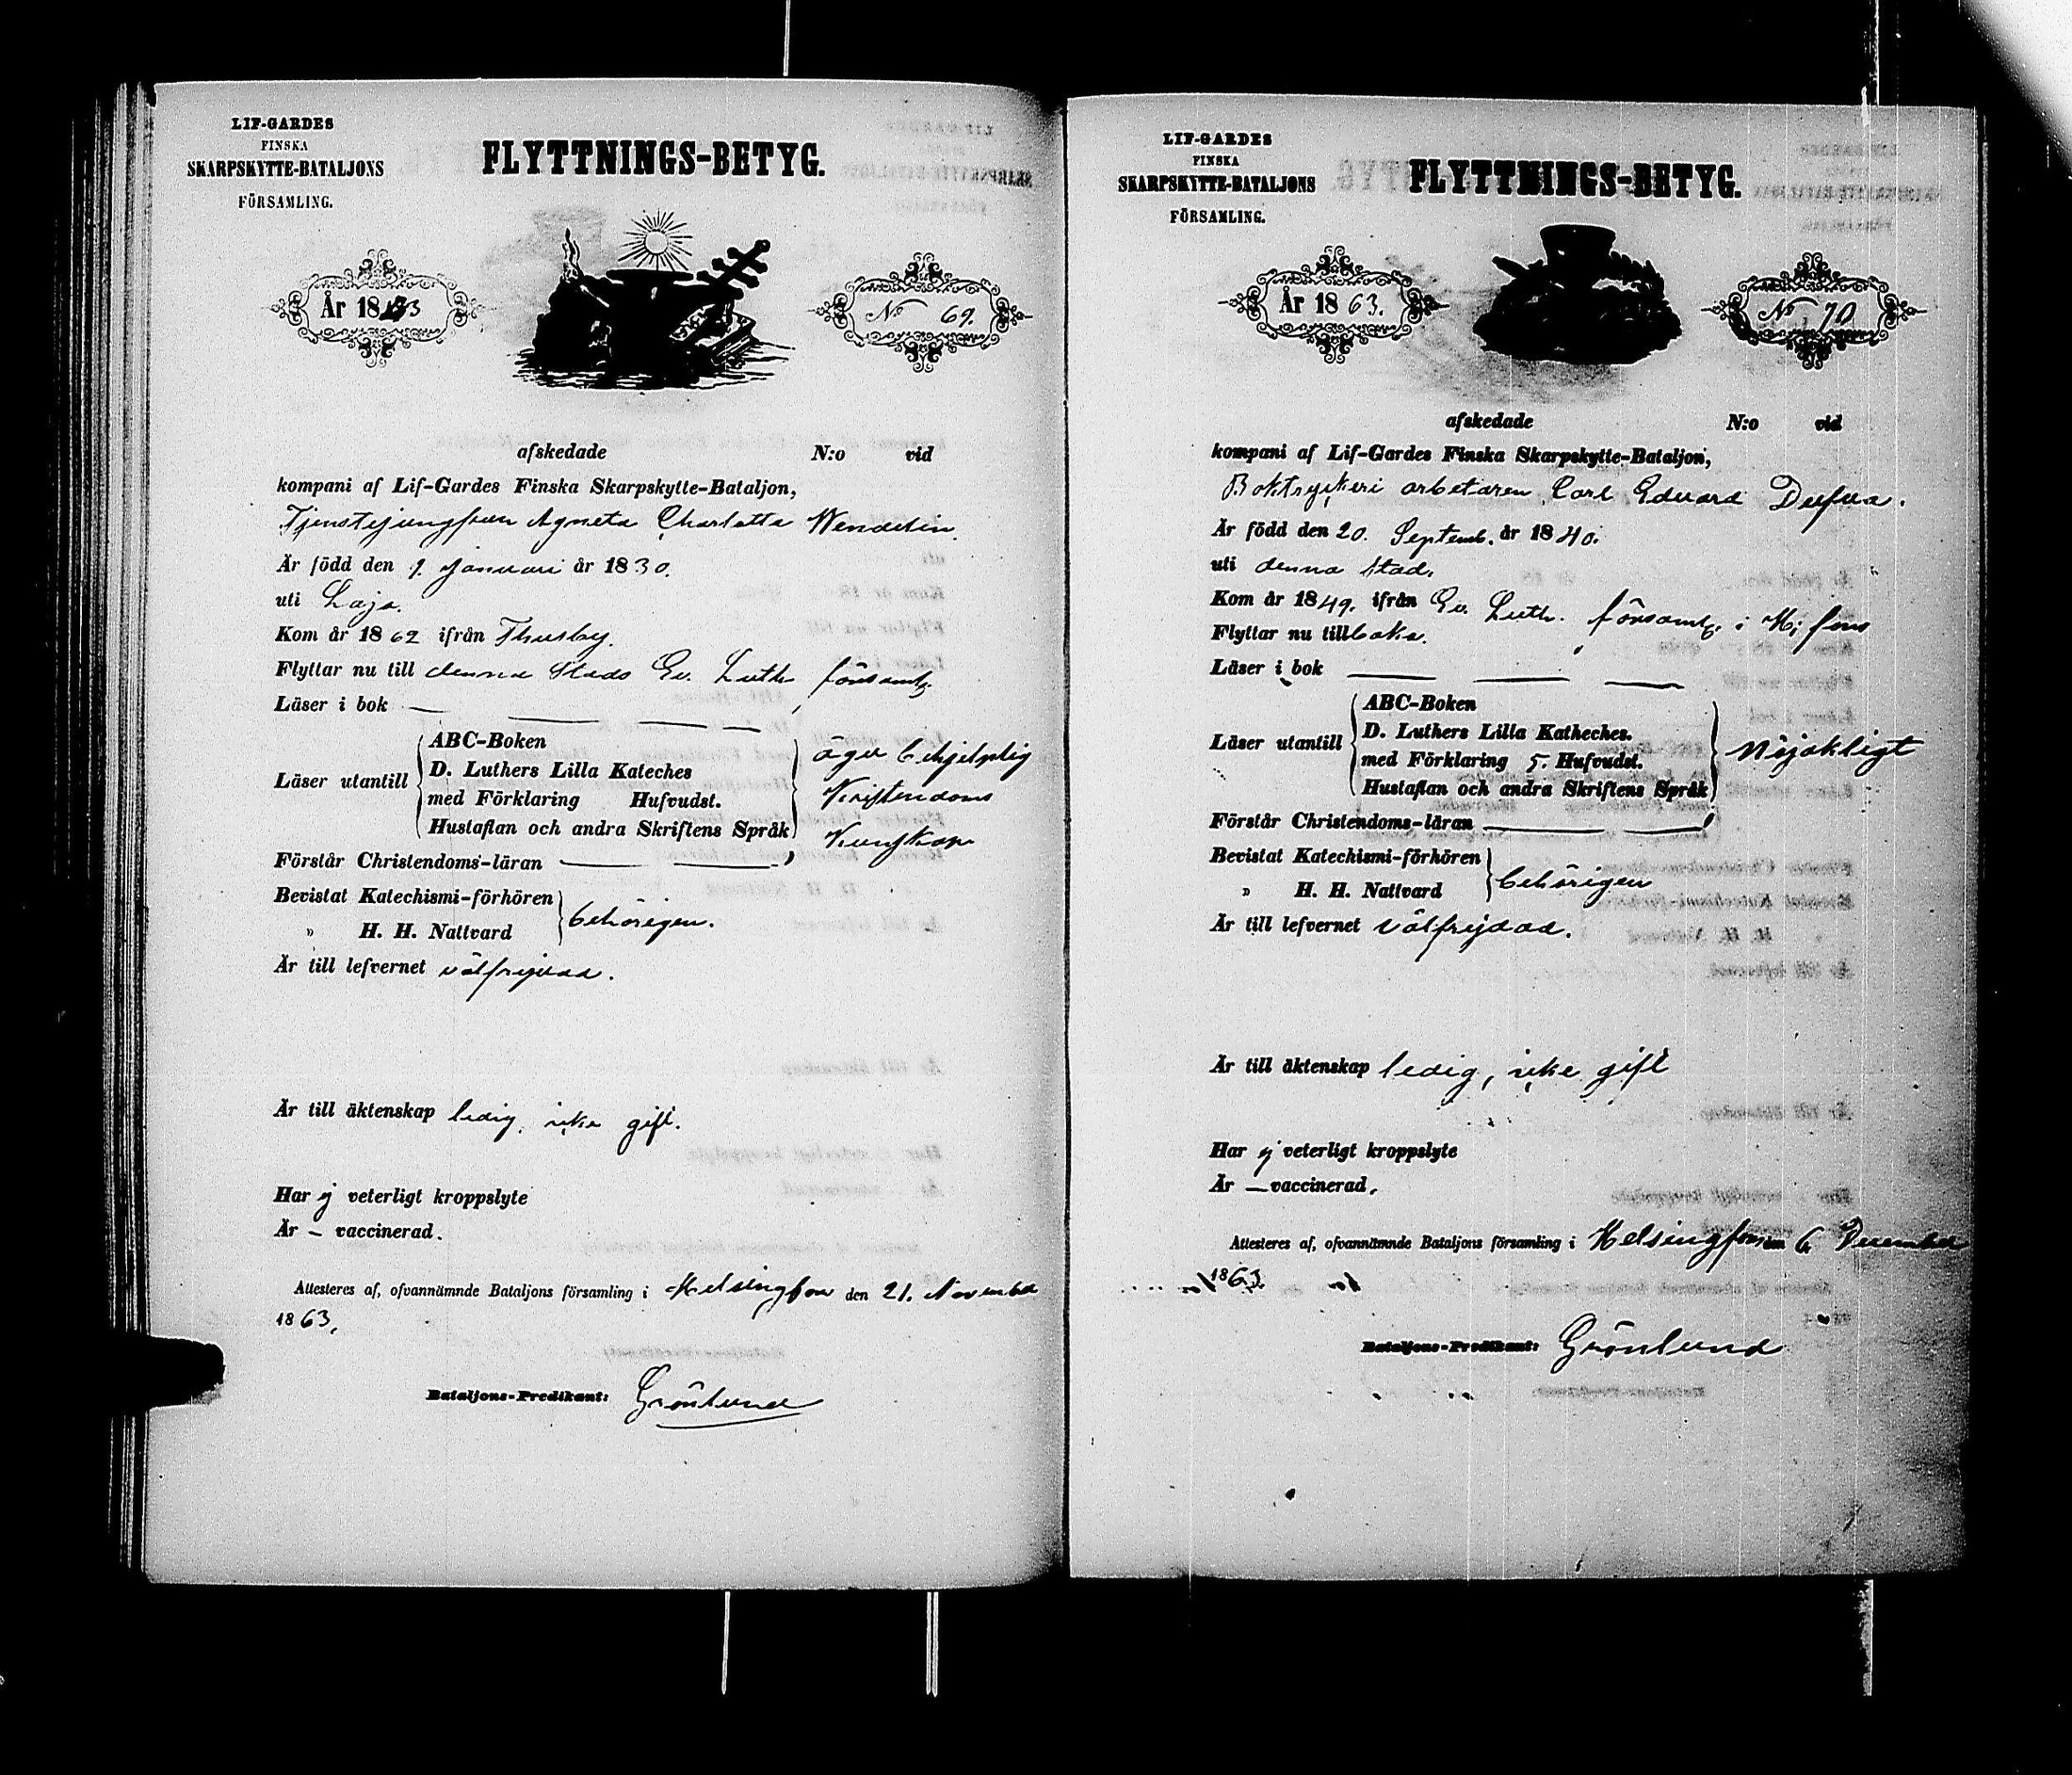 LIF-GARDES
FINSKA
SKARPSKYTTE-BATALJONS
FÖRSAMLING.
FLYTTNINGS-BETYG.
År 1863
No 69.
afskedade N:o vid
kompani af Lif-Gardes Finska Skarpskytte-Bataljon,
Tjenstejungfrun Agneta Charlotta Wendelin.
Är född den 9. Januari år 1830.
uti Lojo.
Kom år 1862 ifrån Thusby.
Flyttar nu till denna Stads Ev. Luth. församlg.
Läser i bok
ABC-Boken
Läser utantill D. Luthers Lilla Kateches
med Förklaring Hufvudst.
Hustaflan och andra Skriftens Språk
äger behjelplig
Kristendoms
Kunskap
Förstår Christendoms-läran
Bevistat Katechismi-förhören
" H. H. Nattvard
behörigen.
Är till lefvernet välfrejdad.
Är till äktenskap ledig, icke gift.
Har ej veterligt kroppslyte
Är – vaccinerad.
Attesteres af, ofvannämnde Bataljons församling i Helsingfors den 21. November
1863.
Bataljons-Predikant: Grönlund
LIF-GARDES
FINSKA
SKARPSKYTTE-BATALJONS
FÖRSAMLING.
FLYTTNINGS-BETYG.
År 1863.
No 70
afskedade N:o vid
kompani af Lif-Gardes Finska Skarpskytte-Bataljon,
Boktryckeri arbetaren Carl Edvard
Är född den 20. Septemb. år 1840.
uti denna stad.
Kom år 1849. ifrån Ev. Luth. församlg. i H:fors
Flyttar nu tillbaka.
Läser i bok
ABC-Boken
Läser utantill D. Luthers Lilla Katheches.
med Förklaring 5. Hufvudst.
Hustaflan och andra Skriftens Språk
Nöjaktigt
Förstår Christendoms-läran
Bevistat Katechismi-förhören
" H. H. Nattvard
behörigen
Är till lefvernet välfrejdad.
Är till äktenskap ledig, icke gift
Har ej veterligt kroppslyte
Är – vaccinerad.
Attesteres af, ofvannämnde Bataljons församling i Helsingfors den 6 December
1863
Bataljons-Predikant: Grönlund